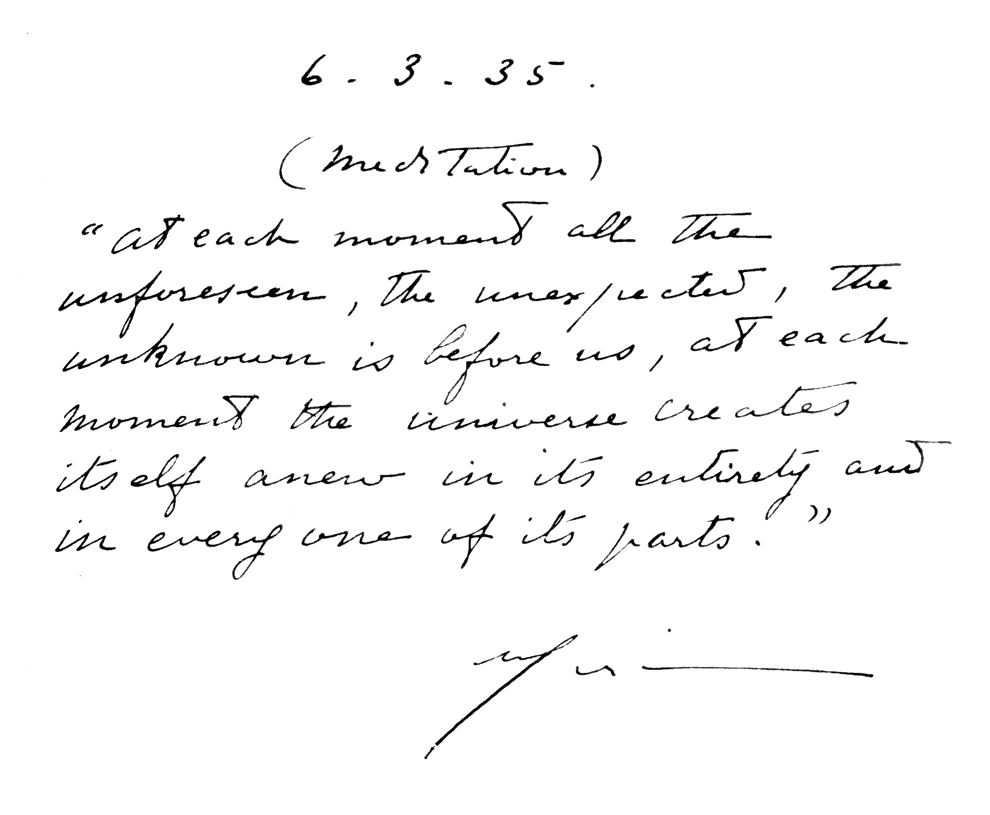 6 - 3 - 35.
(Meditation)
"at each moment all the
unforeseen, the unexpected, the
unknown is before us, at each
moment the universe creates
itself anew in its entirety and
in every one of its parts."